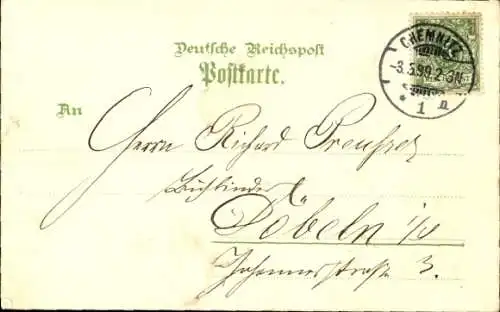 Deutsche Reichspost
Postkarte.
CHEMNITZ
-3.5.99.2-3N.
* 1 n
An
Herrn Richard
Buchbinder
Döbeln i/S
Johannesstraße 3.